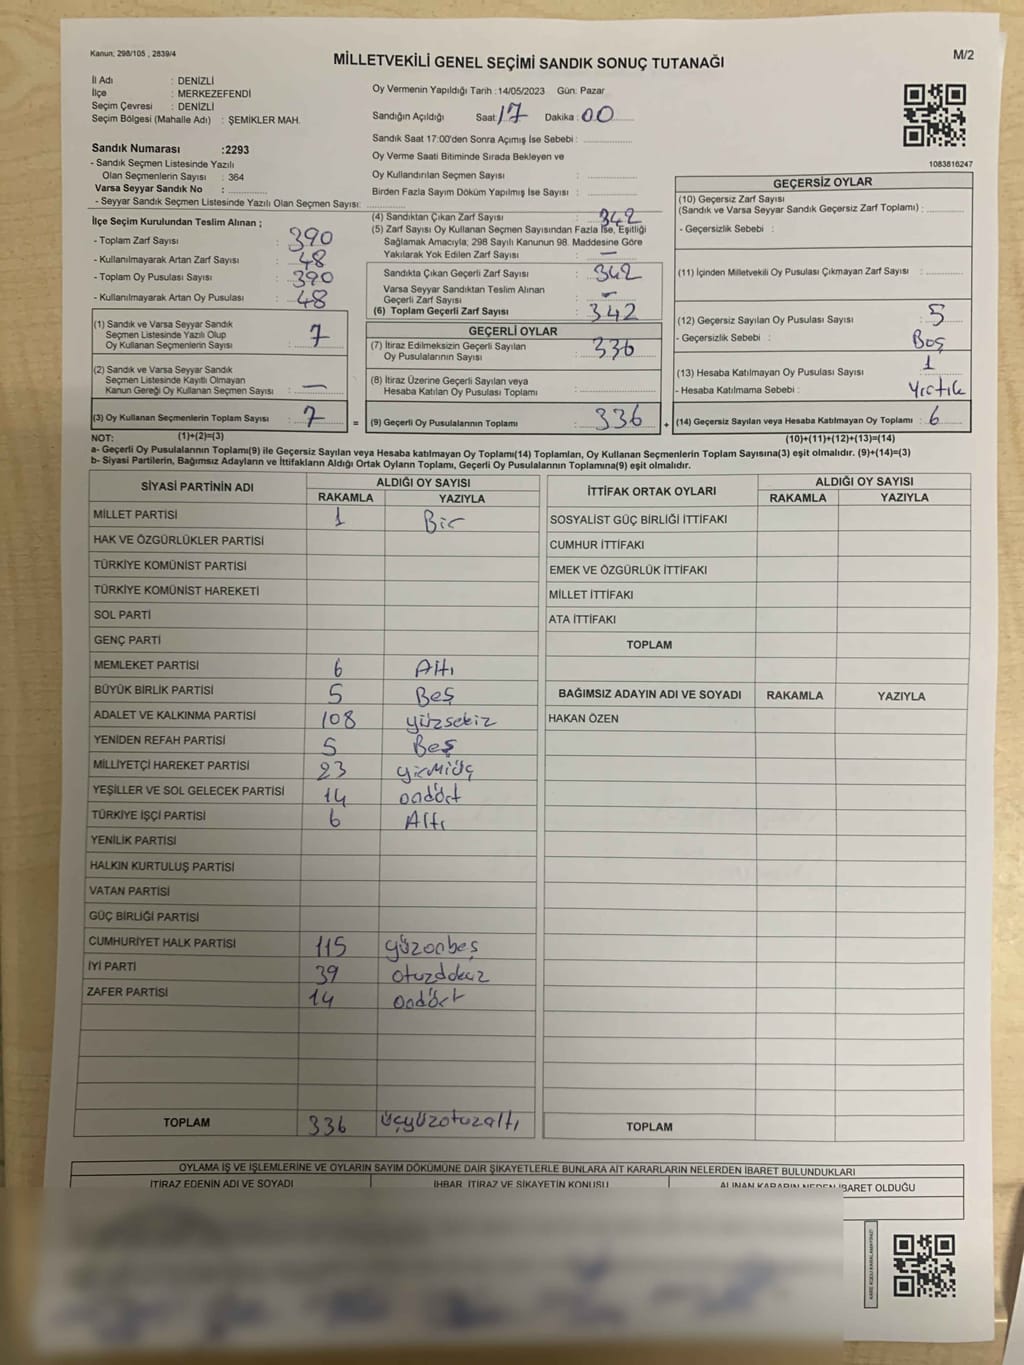 Kanun; 298/105 , 2839/4
MİLLETVEKİLİ GENEL SEÇİMİ SANDIK SONUÇ TUTANAĞI
M/2
İl Adı : DENİZLİ
İlçe : MERKEZEFENDİ
Seçim Çevresi : DENİZLİ
Seçim Bölgesi (Mahalle Adı) : ŞEMİKLER MAH.
Sandık Numarası :2293
- Sandık Seçmen Listesinde Yazılı
Olan Seçmenlerin Sayısı : 364
Varsa Seyyar Sandık No :
- Seyyar Sandık Seçmen Listesinde Yazılı Olan Seçmen Sayısı:
İlçe Seçim Kurulundan Teslim Alınan ;
- Toplam Zarf Sayısı : 390
- Kullanılmayarak Artan Zarf Sayısı : 48
- Toplam Oy Pusulası Sayısı : 390
- Kullanılmayarak Artan Oy Pusulası : 48
(1) Sandık ve Varsa Seyyar Sandık
Seçmen Listesinde Yazılı Olup
Oy Kullanan Seçmenlerin Sayısı : 7
(2) Sandık ve Varsa Seyyar Sandık
Seçmen Listesinde Kayıtlı Olmayan
Kanun Gereği Oy Kullanan Seçmen Sayısı : —
(3) Oy Kullanan Seçmenlerin Toplam Sayısı : 7
Oy Vermenin Yapıldığı Tarih :14/05/2023 Gün: Pazar
Sandığın Açıldığı Saat: 17 Dakika : 00
Sandık Saat 17:00'den Sonra Açımış İse Sebebi :
Oy Verme Saati Bitiminde Sırada Bekleyen ve
Oy Kullandırılan Seçmen Sayısı :
Birden Fazla Sayım Döküm Yapılmış İse Sayısı :
(4) Sandıktan Çıkan Zarf Sayısı : 342
(5) Zarf Sayısı Oy Kullanan Seçmen Sayısından Fazla İse, Eşitliği
Sağlamak Amacıyla; 298 Sayılı Kanunun 98. Maddesine Göre
Yakılarak Yok Edilen Zarf Sayısı : —
Sandıkta Çıkan Geçerli Zarf Sayısı : 342
Varsa Seyyar Sandıktan Teslim Alınan
Geçerli Zarf Sayısı : —
(6) Toplam Geçerli Zarf Sayısı : 342
GEÇERLİ OYLAR
(7) İtiraz Edilmeksizin Geçerli Sayılan
Oy Pusulalarının Sayısı : 336
(8) İtiraz Üzerine Geçerli Sayılan veya
Hesaba Katılan Oy Pusulası Toplamı :
= (9) Geçerli Oy Pusulalarının Toplamı : 336
1083816247
GEÇERSİZ OYLAR
(10) Geçersiz Zarf Sayısı
(Sandık ve Varsa Seyyar Sandık Geçersiz Zarf Toplamı) :
- Geçersizlik Sebebi :
(11) İçinden Milletvekili Oy Pusulası Çıkmayan Zarf Sayısı :
(12) Geçersiz Sayılan Oy Pusulası Sayısı : 5
- Geçersizlik Sebebi : Boş
(13) Hesaba Katılmayan Oy Pusula Sayısı : 1
- Hesaba Katılmama Sebebi : Yırtık
+ (14) Geçersiz Sayılan veya Hesaba Katılmayan Oy Toplamı : 6
NOT: (1)+(2)=(3)
(10)+(11)+(12)+(13)=(14)
a- Geçerli Oy Pusulalarının Toplamı(9) ile Geçersiz Sayılan veya Hesaba katılmayan Oy Toplamı(14) Toplamları, Oy Kullanan Seçmenlerin Toplam Sayısına(3) eşit olmalıdır. (9)+(14)=(3)
b- Siyasi Partilerin, Bağımsız Adayların ve İttifakların Aldığı Ortak Oyların Toplamı, Geçerli Oy Pusulalarının Toplamına(9) eşit olmalıdır.
SİYASİ PARTİNİN ADI ALDIĞI OY SAYISI
RAKAMLA YAZIYLA
MİLLET PARTİSİ 1 Bir
HAK VE ÖZGÜRLÜKLER PARTİSİ
TÜRKİYE KOMÜNİST PARTİSİ
TÜRKİYE KOMÜNİST HAREKETİ
SOL PARTİ
GENÇ PARTİ
MEMLEKET PARTİSİ 6 Altı
BÜYÜK BİRLİK PARTİSİ 5 Beş
ADALET VE KALKINMA PARTİSİ 108 yüzsekiz
YENİDEN REFAH PARTİSİ 5 Beş
MİLLİYETÇİ HAREKET PARTİSİ 23 yirmiüç
YEŞİLLER VE SOL GELECEK PARTİSİ 14 ondört
TÜRKİYE İŞÇİ PARTİSİ 6 Altı
YENİLİK PARTİSİ
HALKIN KURTULUŞ PARTİSİ
VATAN PARTİSİ
GÜÇ BİRLİĞİ PARTİSİ
CUMHURİYET HALK PARTİSİ 115 yüzonbeş
İYİ PARTİ 39 otuzdokuz
ZAFER PARTİSİ 14 ondört
TOPLAM 336 üçyüzotuzaltı
İTTİFAK ORTAK OYLARI ALDIĞI OY SAYISI
RAKAMLA YAZIYLA
SOSYALİST GÜÇ BİRLİĞİ İTTİFAKI
CUMHUR İTTİFAKI
EMEK VE ÖZGÜRLÜK İTTİFAKI
MİLLET İTTİFAKI
ATA İTTİFAKI
TOPLAM
BAĞIMSIZ ADAYIN ADI VE SOYADI RAKAMLA YAZIYLA
HAKAN ÖZEN
TOPLAM
OYLAMA İŞ VE İŞLEMLERİNE VE OYLARIN SAYIM DÖKÜMÜNE DAİR ŞİKAYETLERLE BUNLARA AİT KARARLARIN NELERDEN İBARET BULUNDUKLARI
İTİRAZ EDENİN ADI VE SOYADI İHBAR, İTİRAZ VE ŞİKAYETİN KONUSU ALINAN KARARIN NEDEN İBARET OLDUĞU